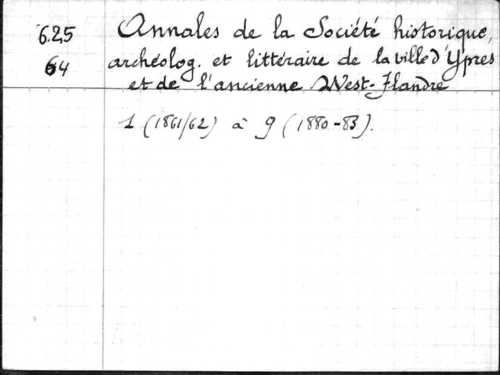 6.25 Annales de la Société historique,
64 archéolog. et littéraire de la ville d'Ypres
et de l'ancienne West-Flandre
1 (1861/62) à 9 (1880-83).